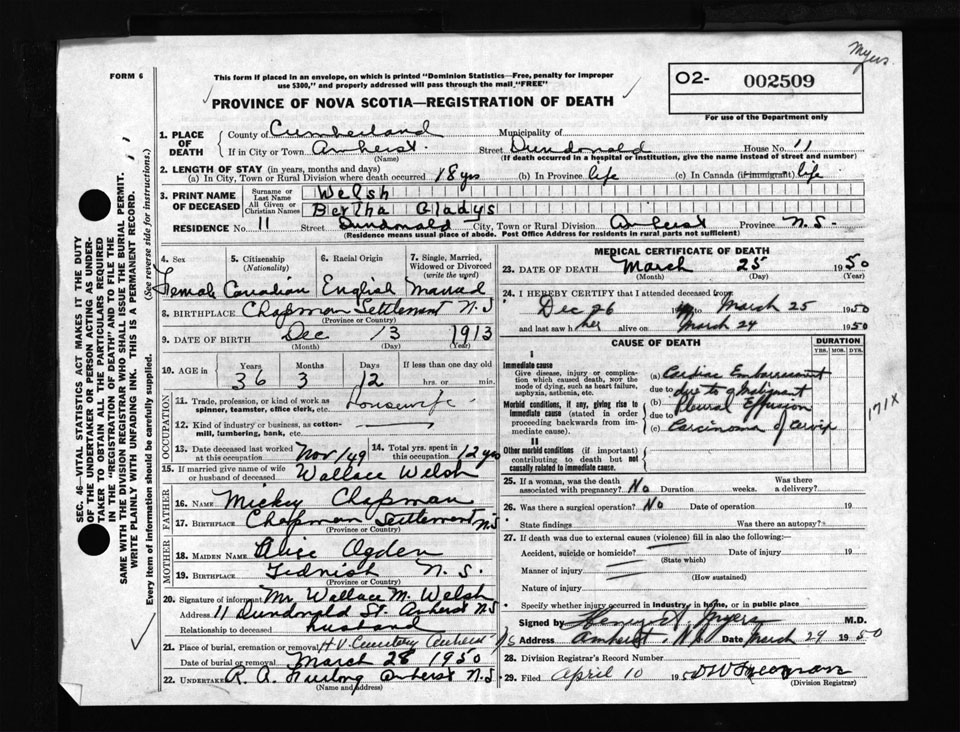 Myers.
FORM 6
This form if placed in an envelope, on which is printed "Dominion Statistics—Free, penalty for improper
use $300," and properly addressed will pass through the mail "FREE"
O2- 002509
For use of the Department only
PROVINCE OF NOVA SCOTIA—REGISTRATION OF DEATH
1. PLACE OF DEATH
County of Cumberland Municipality of
If in City or Town Amherst. Street Dundonald House No. 11
(Name) (If death occurred in a hospital or institution, give the name instead of street and number)
2. LENGTH OF STAY (in years, months and days)
(a) In City, Town or Rural Division where death occurred 18 yrs (b) In Province life (c) In Canada (if immigrant) life
3. PRINT NAME OF DECEASED
Surname or Last Name Welsh
All Given or Christian Names Bertha Gladys
RESIDENCE No. 11 Street Dundonald City, Town or Rural Division Amherst Province N.S.
(Residence means usual place of abode. Post Office Address for residents in rural parts not sufficient)
4. Sex 5. Citizenship (Nationality) 6. Racial Origin 7. Single, Married, Widowed or Divorced (write the word)
Female Canadian English Married
8. BIRTHPLACE Chapman Settlement N.S
(Province or Country)
9. DATE OF BIRTH Dec 13 1913
(Month) (Day) (Year)
10. AGE in Years Months Days If less than one day old
36 3 12 hrs. or min.
OCCUPATION
11. Trade, profession, or kind of work as spinner, teamster, office clerk, etc. Housewife
12. Kind of industry or business, as cotton-mill, lumbering, bank, etc.
13. Date deceased last worked at this occupation Nov/49 14. Total yrs. spent in this occupation 12 yrs
15. If married give name of wife or husband of deceased Wallace Welsh
FATHER
16. Name Mickey Chapman
17. Birthplace Chapman Settlement N.S
(Province or Country)
MOTHER
18. Maiden Name Alice Ogden
19. Birthplace Tidnish N.S.
(Province or Country)
20. Signature of informant Mr. Wallace M. Welsh
Address 11 Dundonald St. Amherst N.S
Relationship to deceased husband
21. Place of burial, cremation or removal Cemetery Amherst N.S
Date of burial or removal March 28 1950
22. UNDERTAKER R. A. Furlong Amherst N.S.
(Name and address)
MEDICAL CERTIFICATE OF DEATH
23. DATE OF DEATH March 25 1950
(Month) (Day) (Year)
24. I HEREBY CERTIFY that I attended deceased from
Dec 26 19 to March 25 1950
and last saw her alive on March 24 1950
CAUSE OF DEATH
DURATION
YRS. MOS. DYS.
I
Immediate cause
Give disease, injury or complication which caused death, NOT the mode of dying, such as heart failure, asphyxia, asthenia, etc.
(a) Cardiac Embarrassment
due to due to Malignant
Morbid conditions, if any, giving rise to immediate cause (stated in order proceeding backwards from immediate cause).
(b) Pleural Effusion
due to
(c) Carcinoma of Cervix
171X
II
Other morbid conditions (if important) contributing to death but not causally related to immediate cause.
25. If a woman, was the death associated with pregnancy? No Duration weeks. Was there a delivery?
26. Was there a surgical operation? No Date of operation 19
State findings Was there an autopsy?
27. If death was due to external causes (violence) fill in also the following:
Accident, suicide or homicide? Date of injury 19
(State which)
Manner of injury
(How sustained)
Nature of injury
Specify whether injury occurred in industry, in home, or in public place
Signed by Myers M.D.
Address Amherst, N.S. Date March 29 1950
28. Division Registrar's Record Number
29. Filed April 10 195
(Division Registrar)
SEC. 46—VITAL STATISTICS ACT MAKES IT THE DUTY
OF THE UNDERTAKER OR PERSON ACTING AS UNDER-
TAKER TO OBTAIN ALL THE PARTICULARS REQUIRED
IN THE "REGISTRATION OF DEATH" AND TO FILE THE
SAME WITH THE DIVISION REGISTRAR WHO SHALL ISSUE THE BURIAL PERMIT.
WRITE PLAINLY WITH UNFADING INK. THIS IS A PERMANENT RECORD.
Every item of information should be carefully supplied. (See reverse side for instructions.)